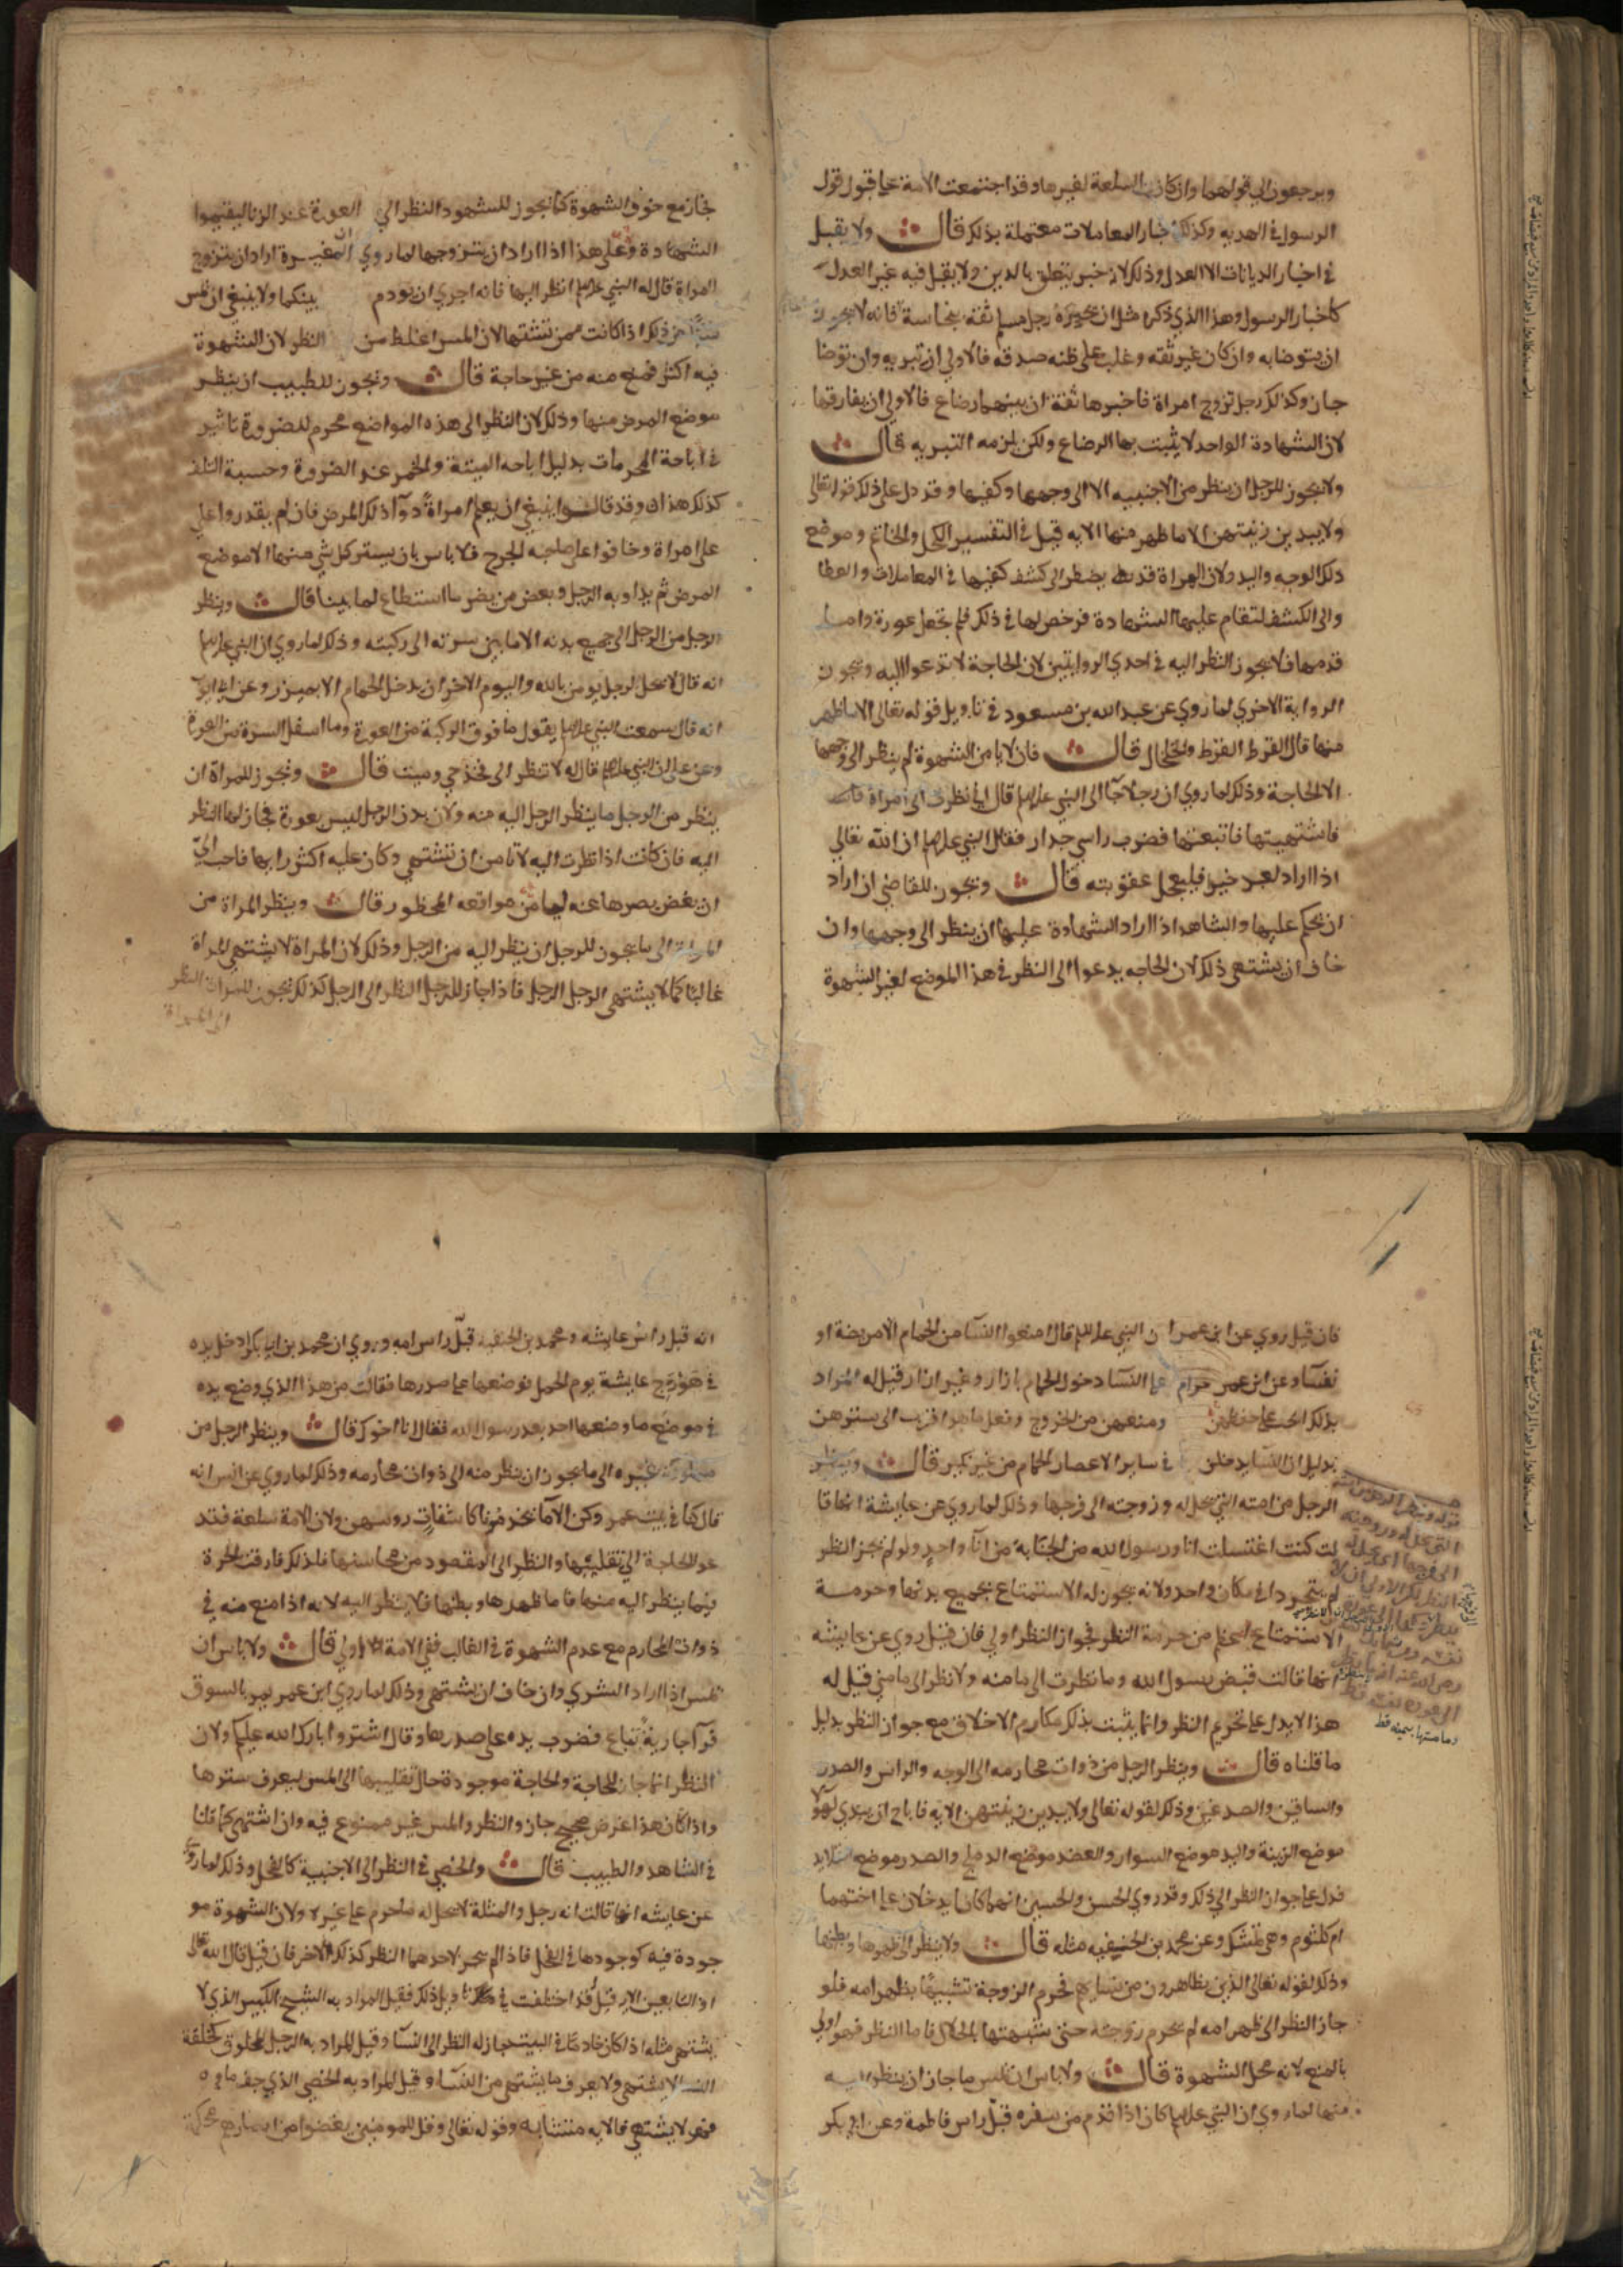 ويرجعون الى قولهما وان كانت السلعة لغيرهما وقد اجتمعت الامة علي قبول قول
الرسول في الهديه وكذلك اخبار المعاملات معتملة بذلك قال ولا يقبل
في اخبار الديانات الا العدل وذلك لان خبر يتعلق بالدين ولا يقبل فيه غير العدل
كاخبار الرسول وهذا الذي ذكر مثل ان يخبره رجل مسلم ثقه بنجاسة فانه لا يجوز له
ان يتوضا به وان كان غير ثقه وغلب على ظنه صدقه فالاولي ان تبر به وان توضا
جاز وكذلك رجل تزوج امراة فاخبرها ثقة ان بينهما رضاع فالاولي ان يفارقها
لان الشهادة الواحد لا يثبت بها الرضاع ولكن يلزمه التبريه قال
ولا يجوز للرجل ان ينظر من الاجنبيه الا الى وجهها وكفيها وقد دل علي ذلك قوله تعالى
ولا يبدين زينتهن الا ما ظهر منها الايه قيل في التفسير الكحل والخاتم وموضع
ذلك الوجه واليد ولان المراة قد تضطر الى كشف كفيها في المعاملات والعطا
والى الكشف لتقام عليها الشهادة فرخص لها في ذلك فلم تجعل عورة واما
قدمها فلا يجوز النظر اليه في احدي الروايتين لان الحاجة لا تدعوا اليه ويجوز في
الرواية الاخري لما روي عن عبد الله بن مسعود في تاويل قوله تعالى الا ما ظهر
منها قال القرط القرط والخلخال قال فان لا يامن الشهوة لم ينظر الى وجهها
الا لحاجة وذلك لما روي ان رجلا جآ الى النبي عليه السلم قال اني نظرت الى امراة
فاشتهيتها فاتبعتها فضرب راسي جدار فقال النبي عليه السلم ان الله تعالي
اذا اراد لعبد خير فليعجل عقوبته قال ويجوز للقاضي ان اراد
ان يحكم عليها والشاهد اذا اراد الشهادة عليها ان ينظر الى وجهها وان
خاف ان يشتهي ذلك لان الحاجه يدعوا الى النظر في هذا الموضع لغير الشهوة
فجاز مع خوف الشهوة كما يجوز للشهود النظر الي العورة عند الزنا ليقيموا
الشهادة وعلي هذا اذا اراد ان يتزوجها لما روي ان المغيرة اراد ان يتزوج
امراة قال له النبي عليه السلم انظر اليها فانه اجري ان يودم بينكما ولا ينبغي ان يمس
شيا من ذلك اذا كانت ممن تشتهي لان المس اغلظ من النظر لان الشهوة
فيه اكثر فمنع منه من غير حاجة قال ويجوز للطبيب ان ينظر
موضع المرض منها وذلك لان النظر الى هذه المواضع محرم للضرورة تاثير
في اباحة المحرمات بدليل اباحه الميتة والخمر عند الضرورة وخشية التلف
كذلك هذا وقد قالوا ينبغي ان يعلم امراة دوآ ذلك المرض فان لم يقدروا علي
على امراة وخافوا على صاحبه الجرح فلا باس بان يستر كل شي منها الا موضع
المرض ثم يداويه الرجل ويغض من بصره ما استطاع لما بينا قال وينظر
الرجل من الرجل الى جميع بدنه الا ما بين سرته الى ركبته وذلك لما روي ان النبي عليه السلم
انه قال لا يحل لرجل يومن بالله واليوم الاخر ان يدخل الحمام الا بميزر وعن ابي ايوب
انه قال سمعت النبي عليه السلم يقول ما فوق الركبة من العورة وما اسفل السرة من العورة
وعن علي ان النبي عليه السلم قال له لا تنظر الى فخذ حي وميت قال ويجوز للمراة ان
ينظر من الرجل ما ينظر الرجل اليه منه ولان بدن الرجل ليس بعورة فجاز لها النظر
اليه فان كانت اذا نظرت اليه لا تامن ان تشتهي وكان عليه اكثر رايها فاحب الي
ان يغض بصرها عنه لما من مواقعه المحظور قال وينظر المراة من
المراة الى ما يجوز للرجل ان ينظر اليه من الرجل وذلك لان المراة لا يشتهي المراة
غالبا كما لا يشتهي الرجل الرجل فاذا جاز للرجل النظر الى الرجل كذلك يجوز للمراة النظر
الى المراة
فان قيل روي عن ابن عمر ان النبي عليه السلم قال امنعوا النسآ من الحمام الا مريضة او
نفسآ وعن ابن عمر حرام علي النسآ دخول الحمام بازار وغير ازار قيل له المراد
بذلك الحث علي حفظهن ومنعهن من الخروج وفعل ما هو اقرب الى سترهن
بدليل ان النسآ يدخلن في ساير الاعصار الحمام من غير نكير قال وينظر
الرجل من امته التي يحل له وزوجته الى فرجها وذلك لما روي عن عايشة انها قا
لت كنت اغتسلت انا ورسول الله من الجنابة من انآ واحد ولو لم يجز النظر
لم يتجردا في مكان واحد ولانه يجوز له الاستمتاع بجميع بدنها وحرمة
الاستمتاع اعظم من حرمة النظر فجواز النظر اولي فان قيل روي عن عايشه
انها قالت قبض رسول الله وما نظرت الى ما منه ولا نظر الى ما مني قيل له
هذا لا يدل علي تحريم النظر وانما يثبت بذلك مكارم الاخلاق مع جواز النظر بدليل
ما قلناه قال وينظر الرجل من ذوات محارمه الى الوجه والراس والصدر
والساقين والصدغين وذلك لقوله تعالى ولا يبدين زينتهن الايه فاباح ان يبدي لهولآ
موضع الزينة واليد موضع السوار والعضد موضع الدملج والصدر موضع القلايد
فدل علي جواز النظر الي ذلك وقد روي الحسن والحسين انهما كانا يدخلان علي اختهما
ام كلثوم وهي تمتشط وعن محمد بن الحنيفيه مثله قال ولا ينظر الى ظهرها وبطنها
وذلك لقوله تعالى الذين يظاهرون من نسايهم فحرم الزوجة تشبيها بظهر امه فلو
جاز النظر الى ظهر امه لم يحرم زوجته حتى شبهتها بالحلال فاما النظر فهو اولي
بالمنع لانه محل الشهوة قال ولا باس ان يمس ما جاز ان ينظر اليه
منها لما روي ان النبي عليه السلم كان اذا قدم من سفره قبل راس فاطمة وعن ابي بكر
انه قبل راس عايشه ومحمد بن الحنفيه قبل راس امه وروي ان محمد بن ابي بكر ادخل يده
في هودج عايشة يوم الجمل فوضعها علي صدرها فقالت من هذا الذي وضع يده
في موضع ما وضعها احد بعد رسول الله فقال انا اخوك قال وينظر الرجل من
مملوكة غيره الى ما يجوز ان ينظر منه الى ذوات محارمه وذلك لما روي عن انس انه
قال كنا في بيت عمر وكن الامآ يخدمننا كاشفات روسهن ولان الامة سلعة فتد
عو الحاجة الى تقليبها والنظر الى المقصود من محاسنها فلذلك فارقت الحرة
فيما ينظر اليه منها فاما ظهرها وبطنها فلا ينظر اليه لانه اذا منع منه في
ذوات المحارم مع عدم الشهوة في الغالب ففي الامة اولي قال ولا باس ان
يمس اذا اراد الشري وان خاف ان يشتهي وذلك لما روي ابن عمر يمر بالسوق
فرآ جارية تباع فضرب يده على صدرها وقال اشتروا بارك الله عليكم ولان
النظر انما جاز للحاجة والحاجة موجودة حال تقليبها الى المس ليعرف سترها
واذا كان هذا غرض صحيح جاز والنظر والمس غير ممنوع فيه وان اشتهي كما قلنا
في الشاهد والطبيب قال والخصي في النظر الى الاجنبية كالفحل وذلك لما روي
عن عايشه انها قالت انه رجل والمثلة لا تحل له ما حرم علي غيره ولان الشهوة مو
جودة فيه كوجودها في الفحل فاذا لم يجز لاحدهما النظر كذلك الاخر فان قيل قال الله تعالى
او التابعين الايه قيل قد اختلفت في تاويل ذلك فقيل المراد به الشيخ الكبير الذي لا
يشتهي مثله اذا كان خادما في البيت جاز له النظر الى النسآ وقيل المراد به الرجل المخلوق كخلقة
النسآ لا يشتهي ولا يعرف ما يشتهي من النسآ وقيل المراد به الخصي الذي جف ماوه
فهو لا يشتهي فالايه متشابه وقوله تعالى وقل للمومنين يغضوا من ابصارهم محكمة